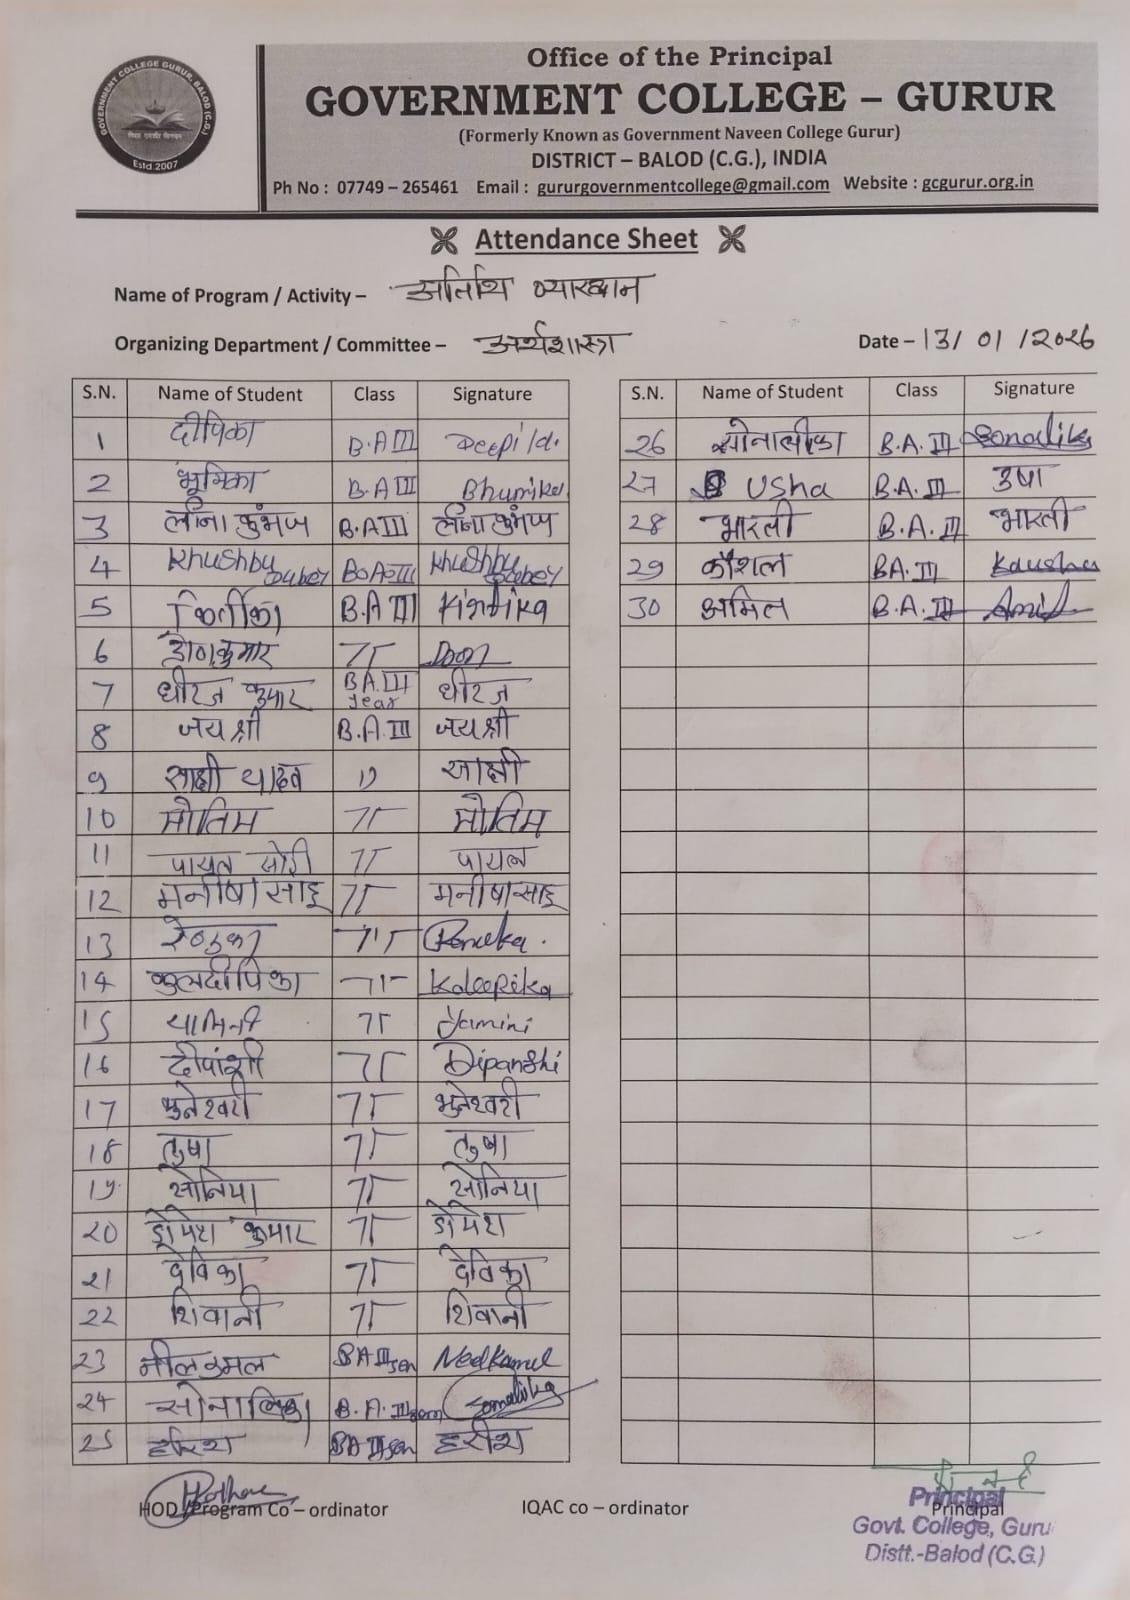 GOVERNMENT COLLEGE GURUR, BALOD (C.G.)
Estd.2007
Office of the Principal
GOVERNMENT COLLEGE – GURUR
(Formerly Known as Government Naveen College Gurur)
DISTRICT – BALOD (C.G.), INDIA
Ph No : 07749 – 265461 Email : gururgovernmentcollege@gmail.com Website : gcgurur.org.in
Attendance Sheet
Name of Program / Activity – अतिथि व्याख्यान
Organizing Department / Committee – अर्थशास्त्र Date – 13/01/2026
S.N. Name of Student Class Signature
1 दीपिका B.A III
2 भूमिका B.A III Bhumika
3 लीना कुंभज B.A III लीना कुंभज
4 Khushbu Dubey B.A III Khushbu Dubey
5 किर्तीका B.A III Kirtika
6 डोणकुमार 11
7 धीरज कुमार B.A.III year धीरज
8 जयश्री B.A.III जयश्री
9 साक्षी यादव 11 साक्षी
10 मोतिम 11 मोतिम
11 पायल सोरी 11 पायल
12 मनीषा साहू 11 मनीषा साहू
13 रेणुका 11 Renuka
14 कुलदीपिका 11
15 यामिनी 11 Yamini
16 दीपांशी 11 Dipanshi
17 भुनेश्वरी 11 भुनेश्वरी
18 तुषा 11 तुषा
19 सोनिया 11 सोनिया
20 डोमेश कुमार 11 डोमेश
21 देविका 11 देविका
22 शिवानी 11 शिवानी
23 नीलकमल BA III sem Neelkamal
24 सोनालिका B.A. III sem Somalika
25 हरिश BA III sem हरीश
S.N. Name of Student Class Signature
26 सोनालीका B.A. III Sonalika
27 Usha B.A. III उषा
28 भारती B.A. III भारती
29 कौशल BA. III Kaushal
30 अमित B.A. III Amit
HOD /Program Co – ordinator IQAC co – ordinator Principal
Principal
Govt. College, Guru
Distt.-Balod (C.G.)